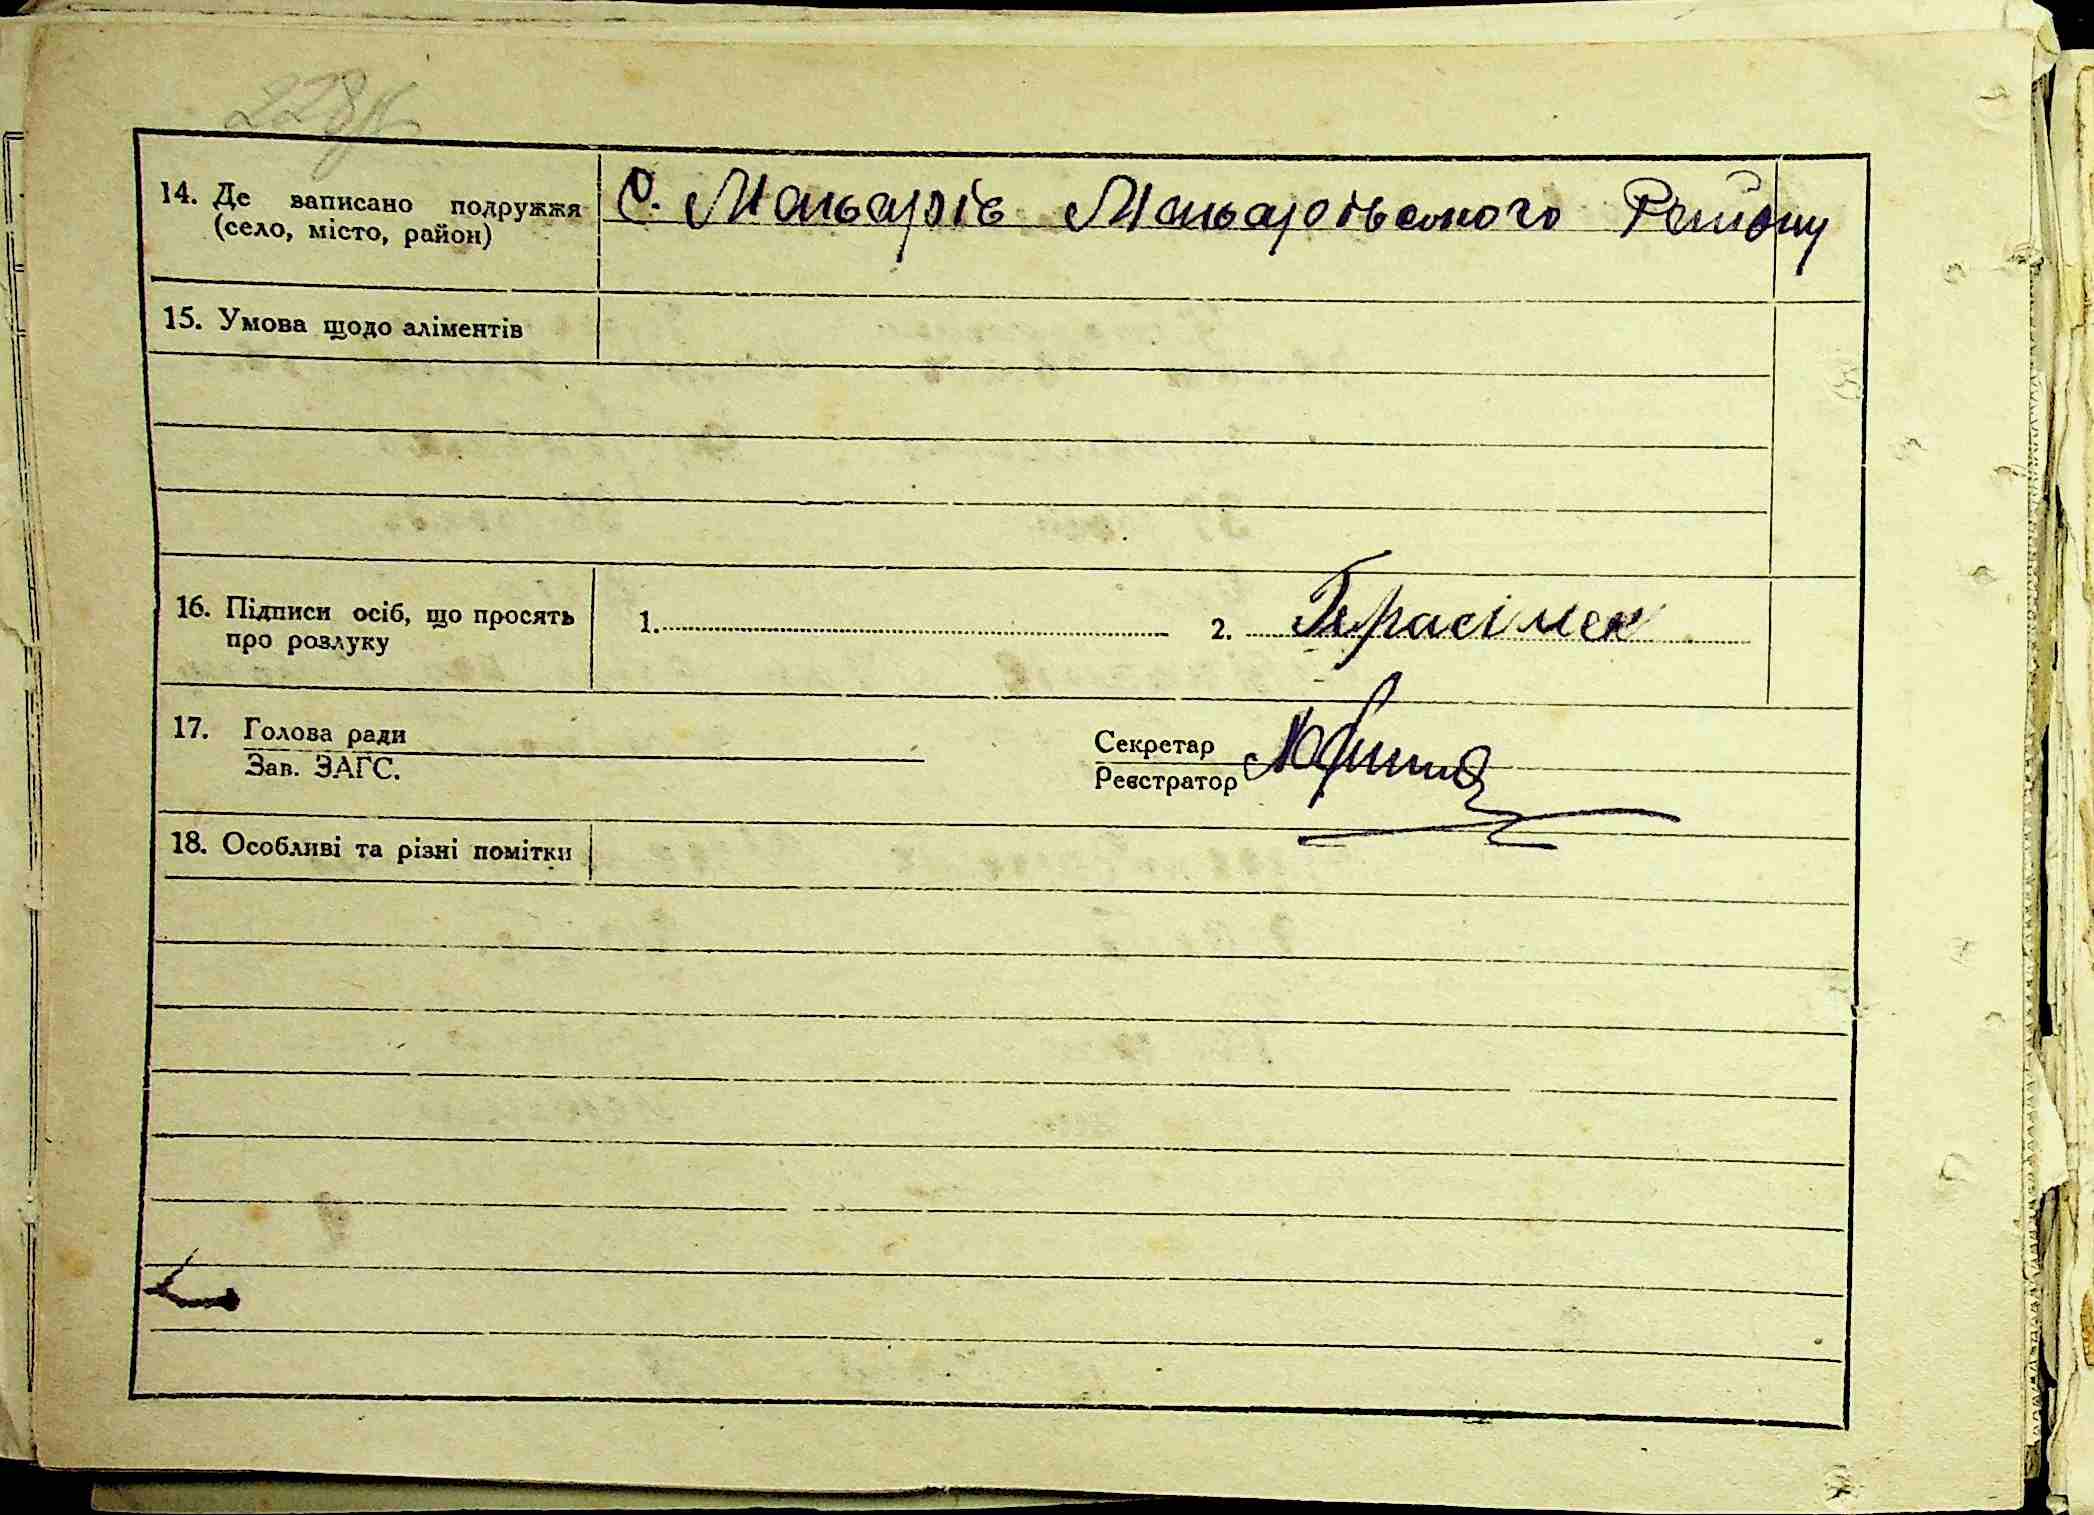 14. Де записано подружжя
(село, місто, район)
С. Макарів Макарівського Району
15. Умова щодо аліментів
16. Підписи осіб, що просять
про розлуку
1. 2. Герасімек
17. Голова ради
Зав. ЗАГС.
Секретар
Реєстратор
18. Особливі та різні помітки